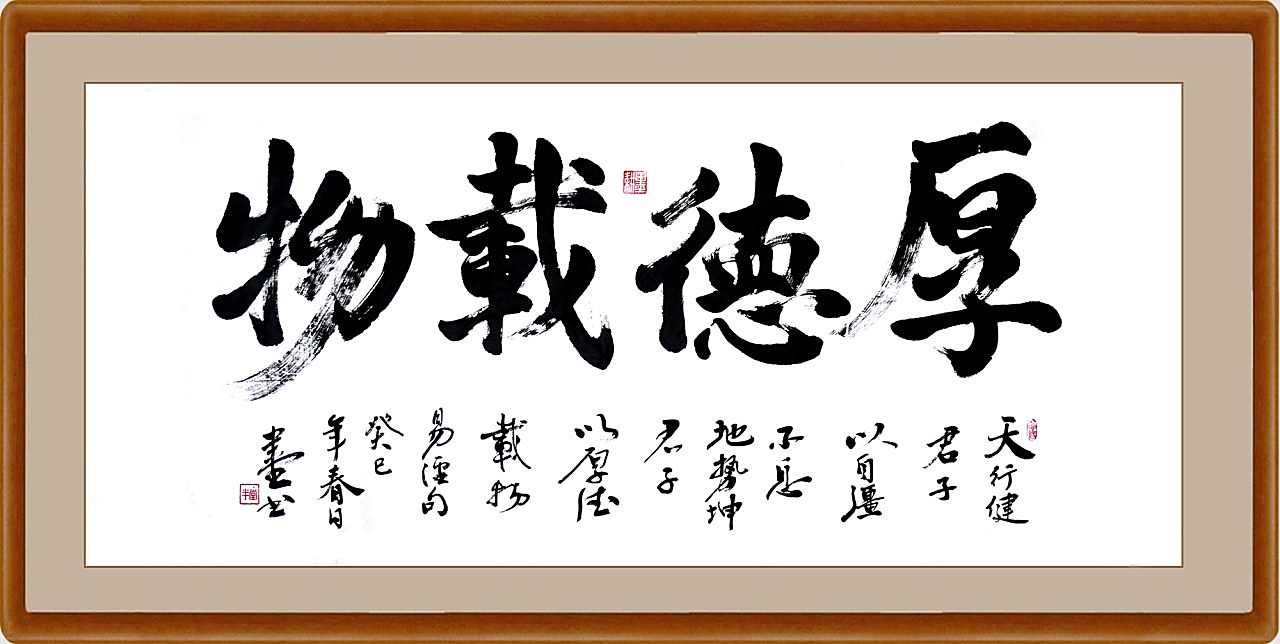 厚德載物
天行健
君子
以自彊
不息
地勢坤
君子
以厚德
載物
易經句
癸巳
年春日
书